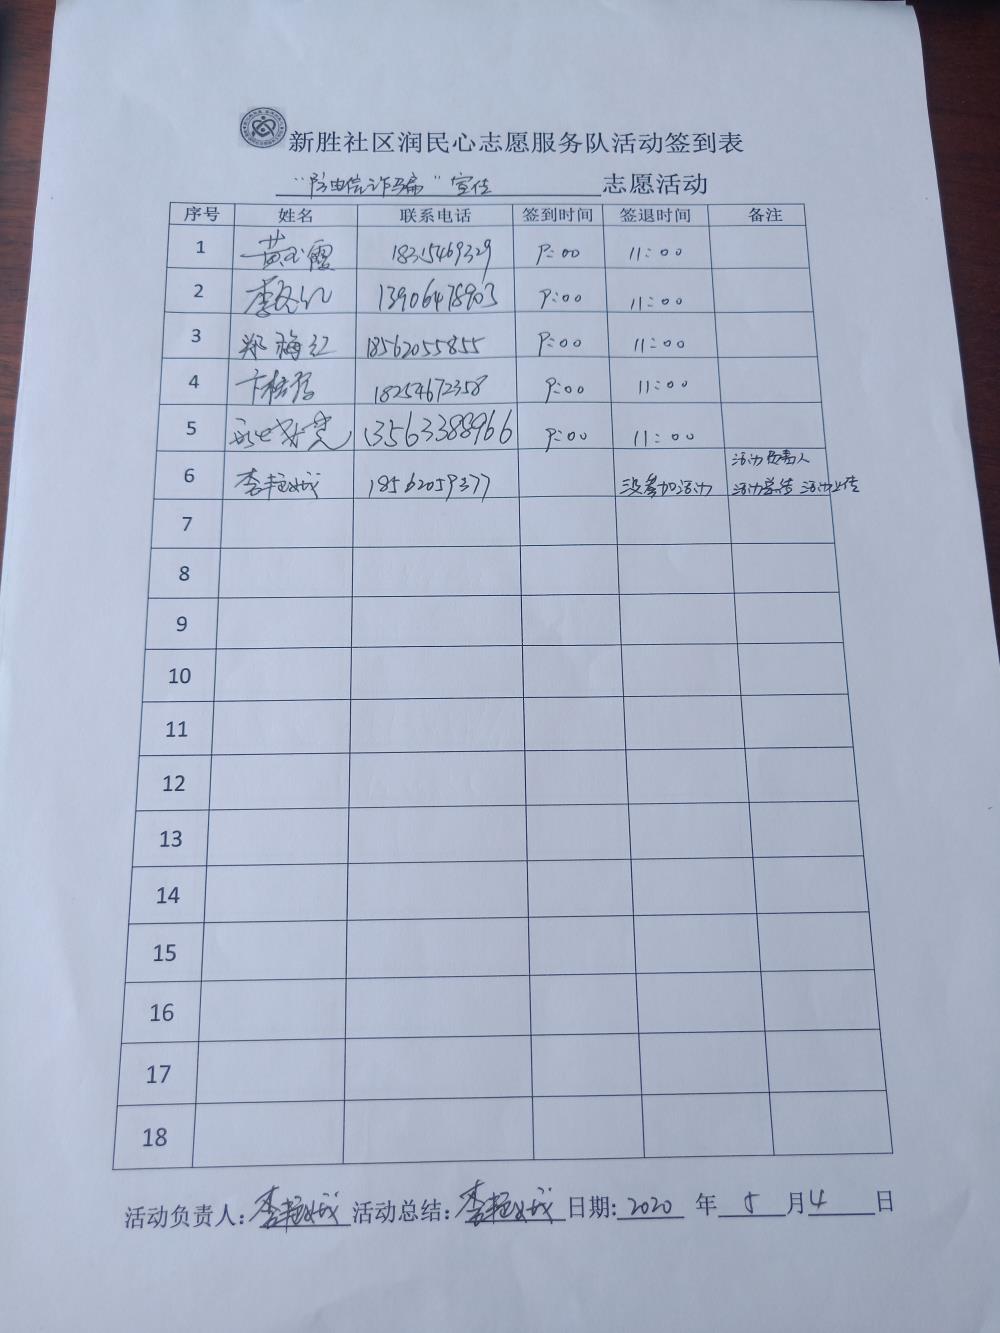 新胜社区润民心志愿服务队活动签到表
“防电信诈骗”宣传 志愿活动
序号 姓名 联系电话 签到时间 签退时间 备注
1 黄玉霞 18315469329 9:00 11:00
2 13906478903 9:00 11:00
3 郑梅红 18562055855 9:00 11:00
4 18254672358 9:00 11:00
5 13563388966 9:00 11:00
6 李艳斌 18562059377 没参加活动 活动负责人
活动宣传 活动上传
7
8
9
10
11
12
13
14
15
16
17
18
活动负责人: 李艳斌 活动总结: 李艳斌 日期: 2020 年 5 月 4 日